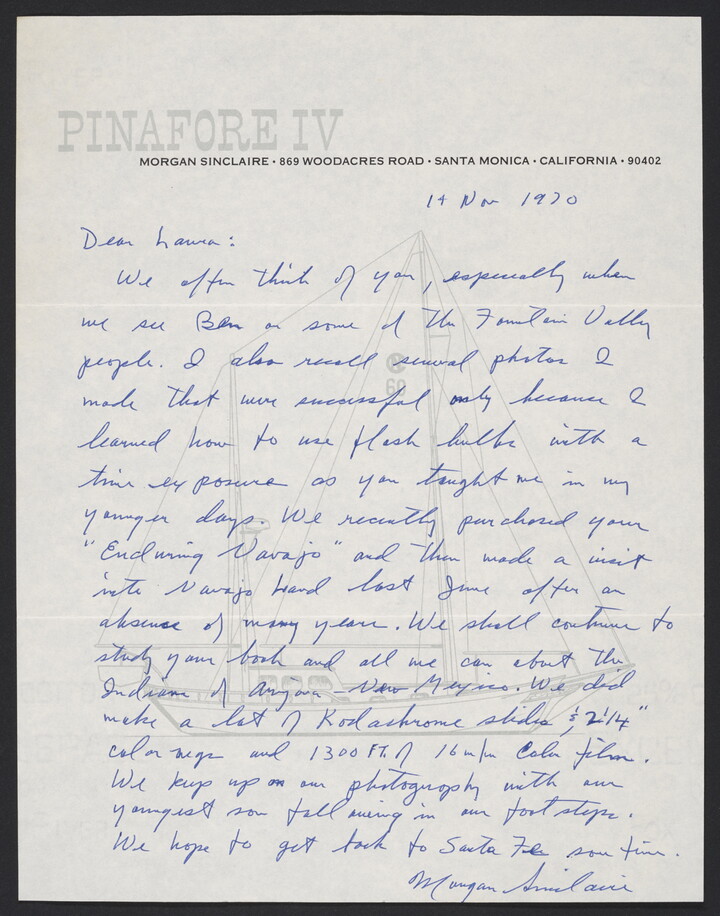 PINAFORE IV
MORGAN SINCLAIRE · 869 WOODACRES ROAD · SANTA MONICA · CALIFORNIA · 90402
14 Nov 1970
Dear Laura:
We often think of you, especially when
we see Ben or some of the Fountain Valley
people. I also recall several photos I
made that were successful only because I
learned how to use flash bulbs with a
time exposure as you taught me in my
younger days. We recently purchased your
"Enduring Navajo" and then made a visit
into Navajo Land last June after an
absence of many years. We shall continue to
study your book and all we can about the
Indians of Arizona – New Mexico. We did
make a lot of Kodachrome slides, & 2 1/4"
color negs and 1300 FT. of 16 m/m Color film.
We keep up on our photography with our
youngest son following in our footsteps.
We hope to get back to Santa Fe some time.
Morgan Sinclaire
69